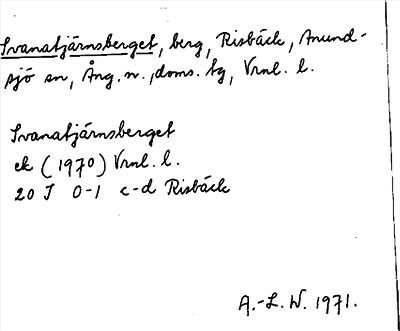 Svanatjärnsberget, berg, Risbäck, Anund-
sjö sn, Ång. n., doms. tg, Vrnl. l.
Svanatjärnsberget
ek (1970) Vrnl. l.
20 J 0-1 c-d Risbäck
A.-L. W. 1971.